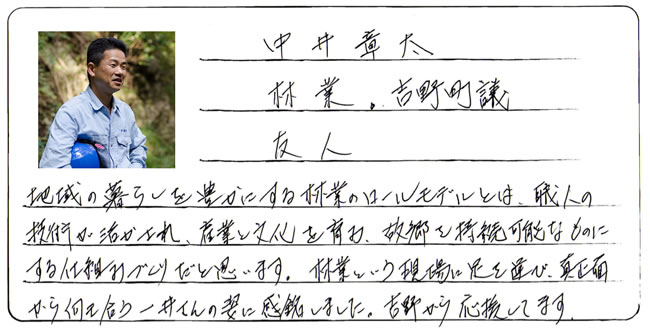 中井章太
林業。吉野町議
友人
地域の暮らしを豊かにする林業のロールモデルとは、職人の
技術が活かされ、産業と文化を育み、故郷を持続可能なものに
する仕組みづくりだと思います。林業という現場に足を運び、真正面
から向き合う一井さんの姿に感銘しました。吉野から応援してます。